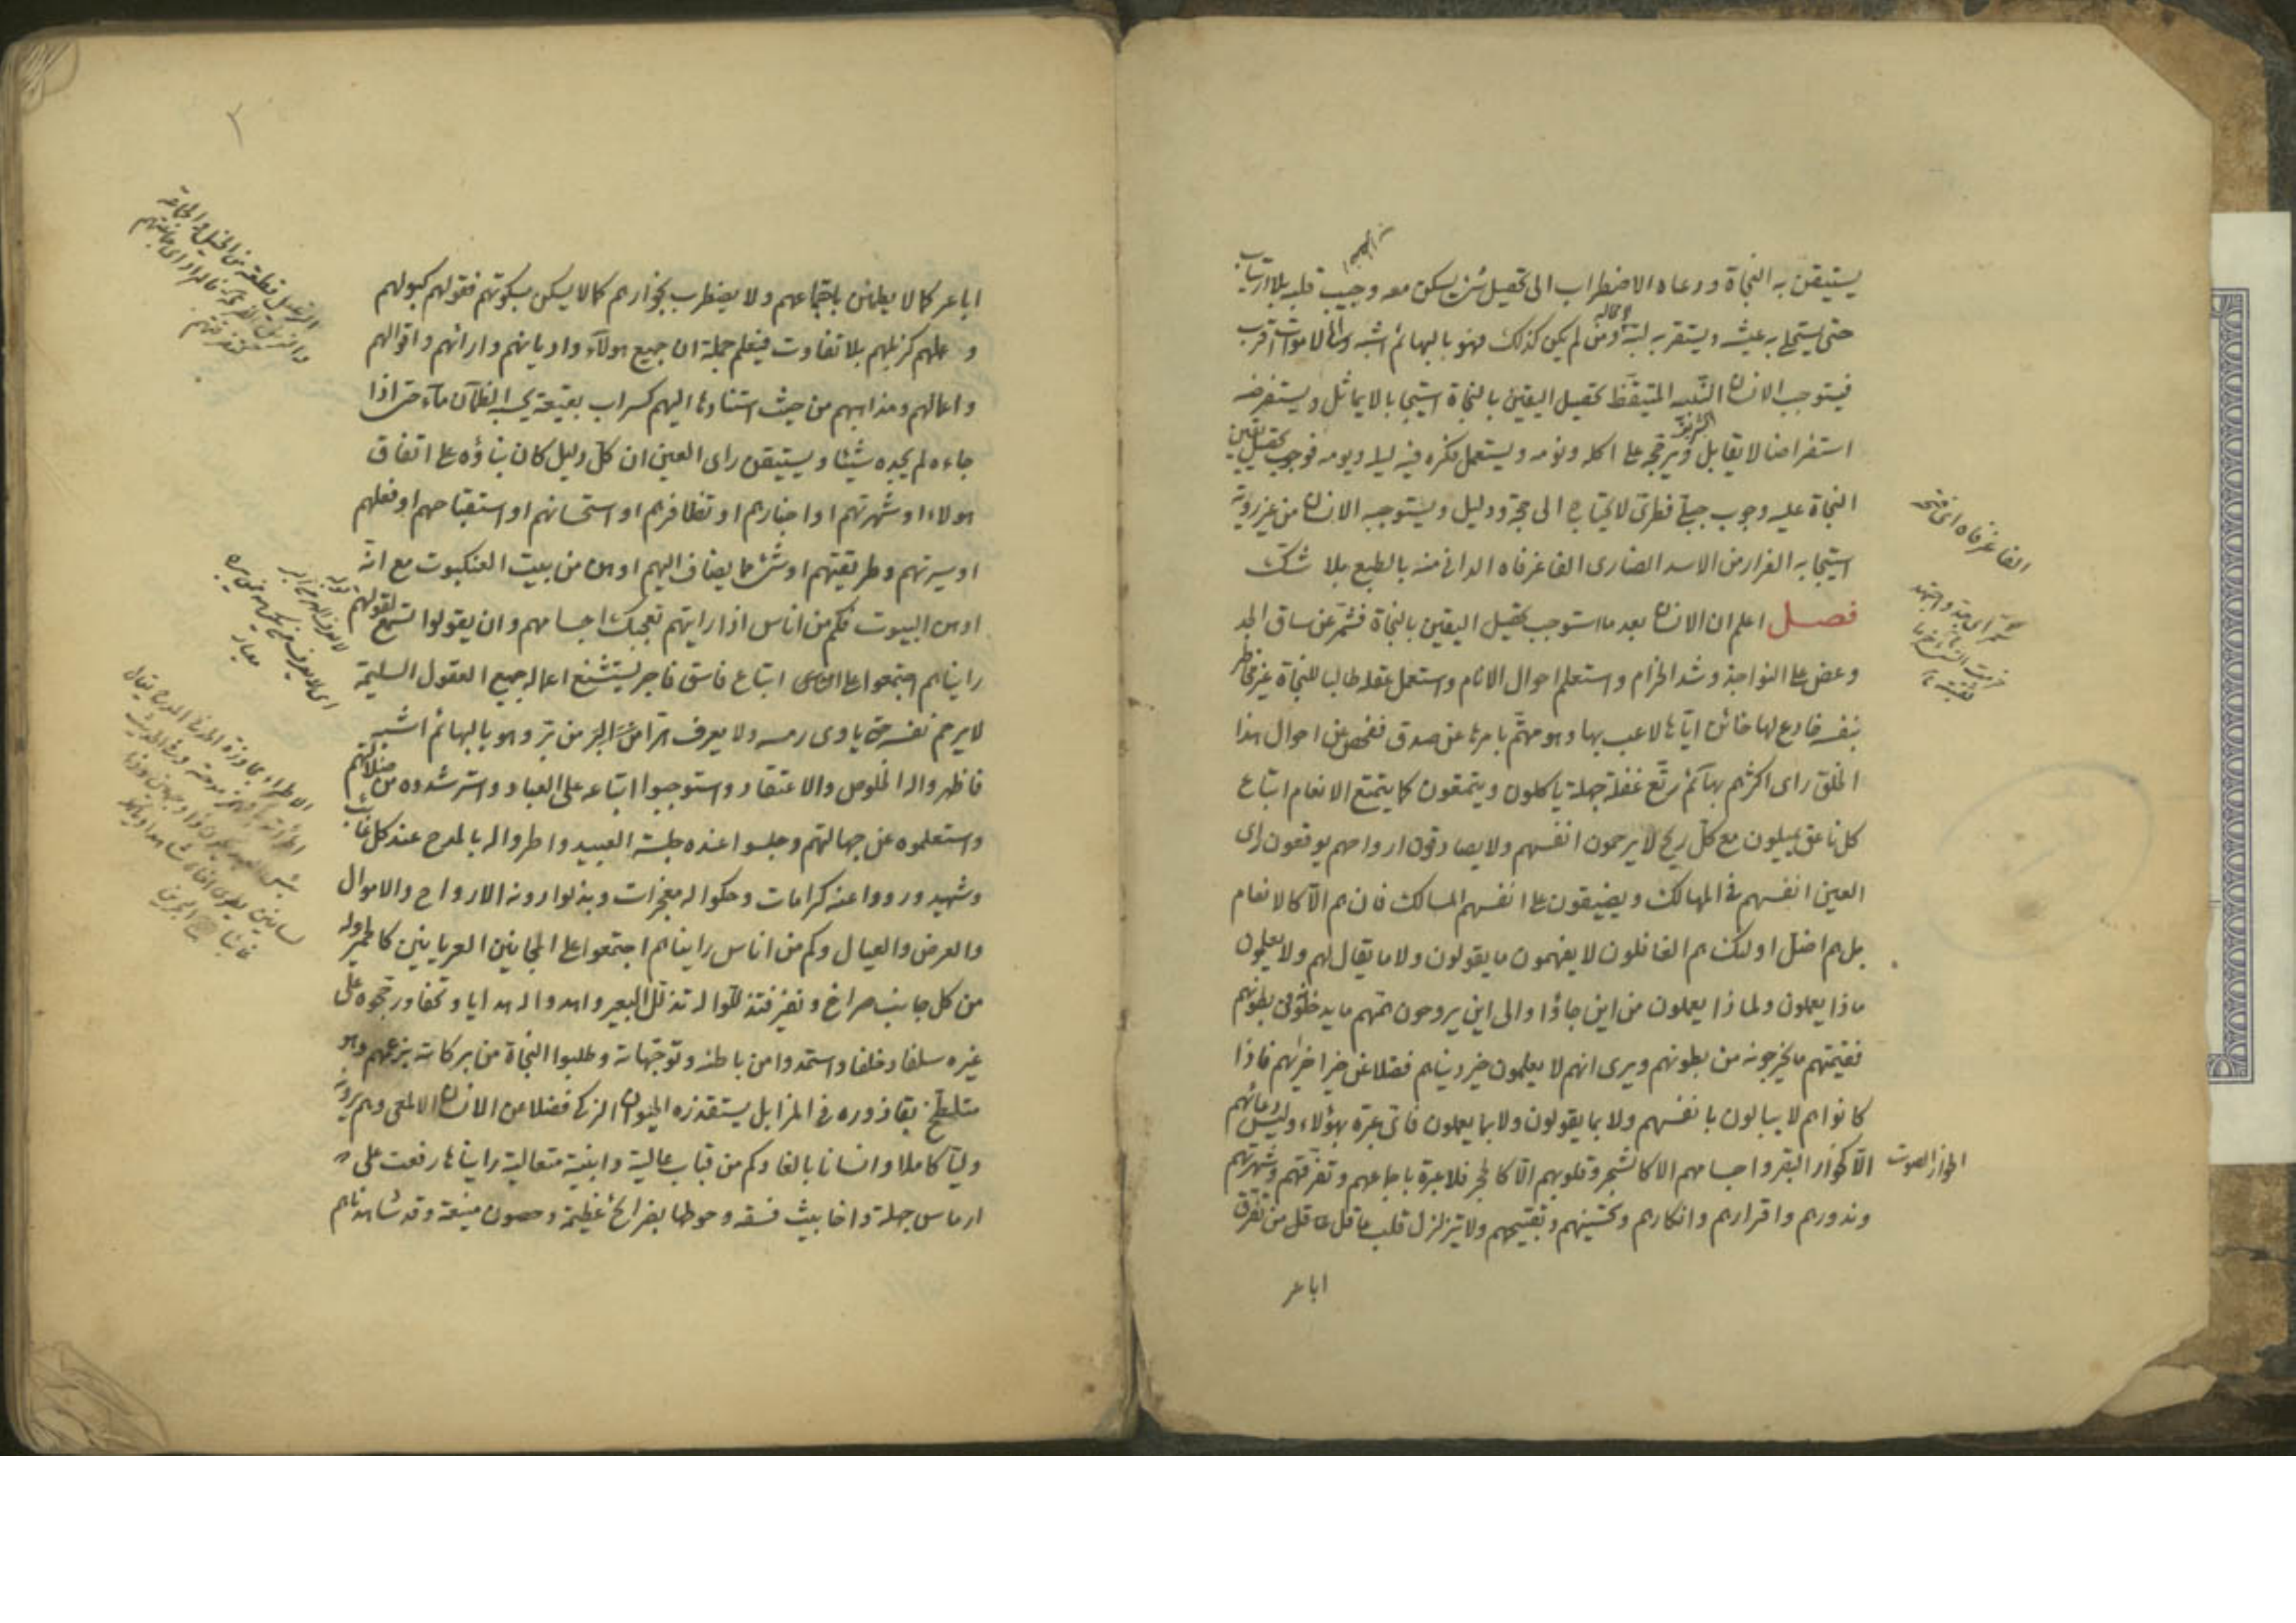 يستيقن به النجاة ودعاه الاضطراب الى تحصيل شئ يسكن معه وجيب قلبه بلا ارتياب
حتى يستحلى به عيشه ويستقر به لبه ومن لم يكن كذلك فهو بالبهائم اشبه والى الاموات اقرب
فيستوجب الانسان النبيه المتيقظ تحصيل اليقين بالنجاة استيجابا لا يماثل ويستفرضه
استفراضا لا يقابل ويرجحه على اكله ونومه ويستعمل فكره فيه ليله ويومه فوجوب تحصيل يقين
النجاة عليه وجوب جبلى فطرى لا يحتاج الى حجة ودليل ويستوجبه الانسان من غير روية
استيجابه الفرار من الاسد الضارى الفاغر فاه الدانى منه بالطبع بلا شك
فصل اعلم ان الانسان بعد ما استوجب تحصيل اليقين بالنجاة فشمر عن ساق الجد
وعض على النواجذ وشد الحزام واستعلم احوال الانام واستعمل عقله طالبا للنجاة غير مخاطر
بنفسه خادع لها خائن اياها لاعب بها وهو مهتم بامرها عن صدق ففحص عن احوال هذا
الخلق راى اكثرهم بهائم رتع غفلة جهلة ياكلون ويتمتعون كما يتمتع الانعام اتباع
كل ناعق يميلون مع كل ريح لا يرحمون انفسهم ولا يصادقون ارواحهم يوقعون راى
العين انفسهم فى المهالك ويضيقون على انفسهم المسالك فان هم الا كالانعام
بل هم اضل اولئك هم الغافلون لا يفهمون ما يقولون ولا ما يقال لهم ولا يعلمون
ماذا يعملون ولماذا يعملون من اين جاؤا والى اين يروحون همهم ما يدخلون فى بطونهم
فقيمتهم ما يخرجونه من بطونهم ويرى انهم لا يعلمون خير دنياهم فضلا عن خير اخريهم فاذا
كانوا هم لا يبالون بانفسهم ولا بما يقولون ولا بما يعملون فاى عبرة بهؤلاء وليس دعائهم
الا كخوار البقر واجسامهم الا كالشجر وقلوبهم الا كالحجر فلا عبرة باجماعهم وتفرقهم وشهرتهم
وندورهم واقرارهم وانكارهم وتحسينهم وتقبيحهم ولا يتزلزل قلب عاقل من تفرق
اباعر
الفاغر فاه اى فتحه
شمر اى جد واجتهد
الخوار الصوت
٢
اباعر كما لا يطمئن باجتماعهم ولا يضطرب بخوارهم كما لا يسكن بسكوتهم فقولهم كبولهم
وعملهم كزبلهم بلا تفاوت فيعلم جملة ان جميع هولاء واديانهم وارائهم واقوالهم
واعمالهم ومذاهبهم من حيث استنادها اليهم كسراب بقيعة يحسبه الظمآن ماء حتى اذا
جاءه لم يجده شيئا ويستيقن راى العين ان كل دليل كان بناؤه على اتفاق
هولاء او شهرتهم او اخبارهم او تظافرهم او استحسانهم او استقباحهم او فعلهم
او سيرتهم وطريقتهم او شئ مما يضاف اليهم اوهن من بيت العنكبوت مع انه
اوهن البيوت فكم من اناس اذا رايتهم تعجبك اجسامهم وان يقولوا تسمع لقولهم
رايناهم اجتمعوا على اتباع فاسق فاجر يستشنع اعماله جميع العقول السليمة
لا يرحم نفسه حتى ياوى رمسه ولا يعرف هرا من بر وهو بالبهائم اشبه
فاظهروا له الخلوص والاعتقاد واستوجبوا اتباعه على العباد واسترشدوه من ضلالتهم
واستعلموه عن جهالتهم وجلسوا عنده جلسة العبيد واطروا له بالمدح عند كل غائب
وشهيد ورووا عنه كرامات وحكوا له معجزات وبذلوا دونه الارواح والاموال
والعرض والعيال وكم من اناس رايناهم اجتمعوا على المجانين العريانين كالحمير وله
من كل جانب صراخ ونفير فتذللوا له تذلل البعير واهدوا له هدايا وتحفا ورجحوه على
غيره سلفا وخلفا واستمدوا من باطنه وتوجهاته وطلبوا النجاة من بركاته بزعمهم وهو
متلطخ بقاذوره فى المزابل يستقذره الحيوان الزكى فضلا عن الانسان الالمعى وهم يرونه
وليا كاملا وانسانا بالغا وكم من قباب عالية وابنية متعالية رايناها رفعت على
ارماس جهلة واخابيث فسقه وحوطها بضرائح عظيمة وحصون منيعة وقد شاهدناهم